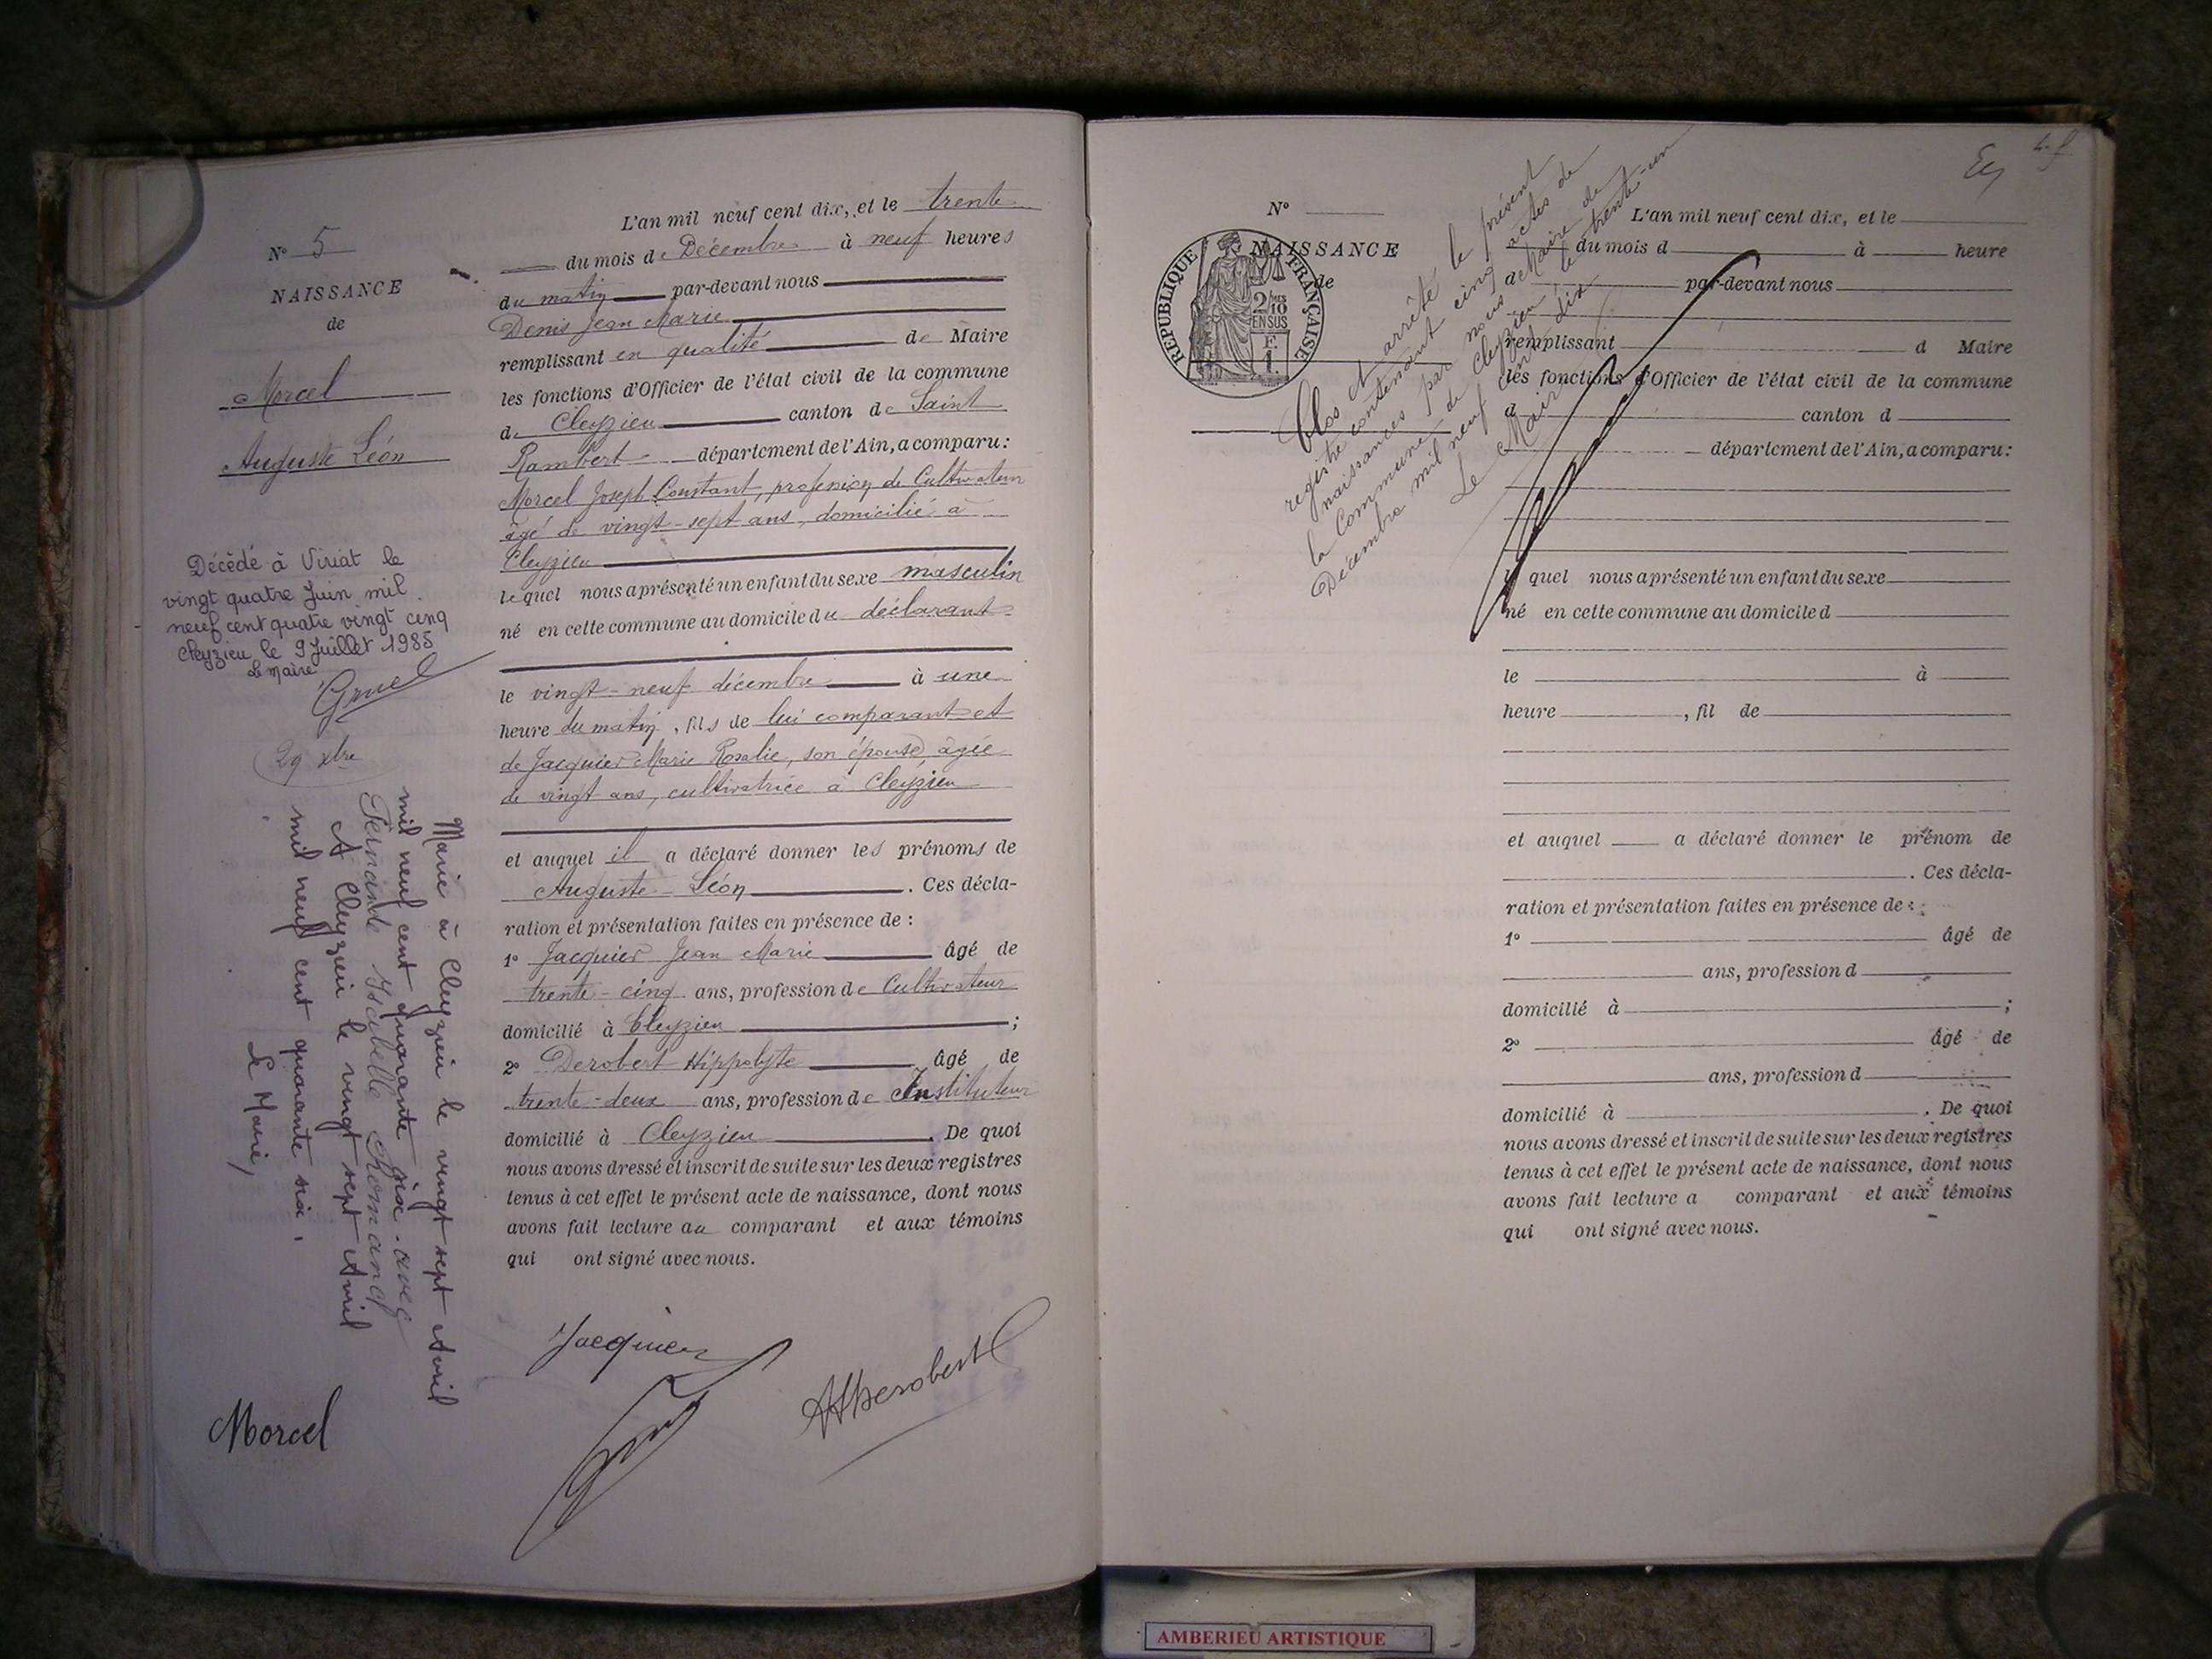 N° 5
NAISSANCE
de
Morcel
Auguste Léon
Décédé à Viriat le
vingt quatre Juin mil
neuf cent quatre vingt cinq
Cleyzieu le 9 Juillet 1985
Le Maire
Gruel
29 xbre
Marié à Cleyzieu le vingt sept Avril
mil neuf cent quarante six - avec
Fernande Isabelle Romand
A Cleyzieu le vingt sept Avril
mil neuf cent quarante six.
Le Maire,
Morcel
L'an mil neuf cent dix, et le trente
du mois de Décembre à neuf heures
du matin par-devant nous
Denis Jean Marie
remplissant en qualité de Maire
les fonctions d'Officier de l'état civil de la commune
de Cleyzieu canton de Saint
Rambert département de l'Ain, a comparu :
Morcel Joseph Constant, profession de Cultivateur
âgé de vingt-sept ans, domicilié à
Cleyzieu
lequel nous a présenté un enfant du sexe masculin
né en cette commune au domicile du déclarant
le vingt-neuf décembre à une
heure du matin, fils de lui comparant et
de Jacquier Marie Rosalie, son épouse, âgée
de vingt ans, cultivatrice à Cleyzieu
et auquel il a déclaré donner les prénoms de
Auguste Léon. Ces décla-
ration et présentation faites en présence de :
1° Jacquier Jean Marie âgé de
trente-cinq ans, profession de Cultivateur
domicilié à Cleyzieu ;
2° Derobert Hippolyte âgé de
trente-deux ans, profession de Instituteur
domicilié à Cleyzieu. De quoi
nous avons dressé et inscrit de suite sur les deux registres
tenus à cet effet le présent acte de naissance, dont nous
avons fait lecture au comparant et aux témoins
qui ont signé avec nous.
Jacquier
HDerobert
N°
NAISSANCE
de
REPUBLIQUE FRANÇAISE
2/10
EN SUS
F.
1.
Clos et arrêté le présent
registre contenant cinq actes de
naissances par nous Maire de
la Commune de Cleyzieu le trente-un
Décembre mil neuf cent dix
Le Maire
L'an mil neuf cent dix, et le
du mois d à heure
d par-devant nous
remplissant d Maire
les fonctions d'Officier de l'état civil de la commune
d canton d
département de l'Ain, a comparu :
le quel nous a présenté un enfant du sexe
né en cette commune au domicile d
le à
heure , fil de
et auquel a déclaré donner le prénom de
. Ces décla-
ration et présentation faites en présence de :
1° âgé de
ans, profession d
domicilié à ;
2° âgé de
ans, profession d
domicilié à . De quoi
nous avons dressé et inscrit de suite sur les deux registres
tenus à cet effet le présent acte de naissance, dont nous
avons fait lecture a comparant et aux témoins
qui ont signé avec nous.
AMBERIEU ARTISTIQUE